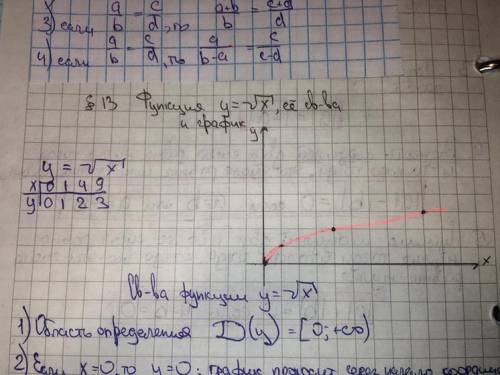 3) если a/b = c/d, то a+b/b = c+d/d
4) если a/b = c/d, то a/b-a = c/c-d
§ 13 Функция y = √x, её св-ва
и график
y
y = √x
x 0 1 4 9
y 0 1 2 3
x
Св-ва функции y = √x
1) Область определения D(y) = [0; +∞)
2) Если x = 0, то y = 0; график проходит через начало